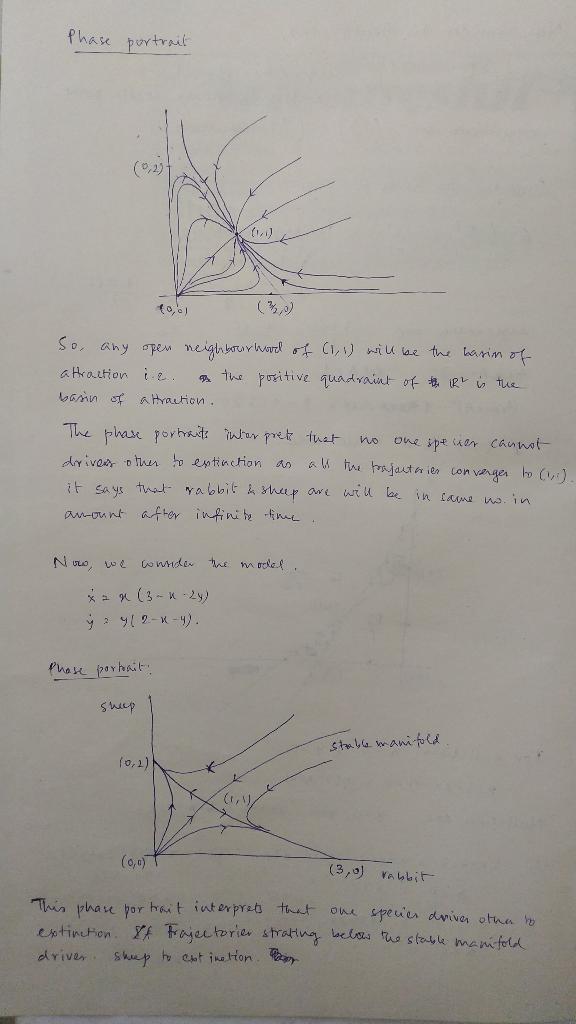 Phase portrait
(0,2)
(1,1)
(0,0)
(3/2,0)
So, any open neighbourhood of (1,1) will be the basin of
attraction i.e. the positive quadraint of IR² is the
basin of attraction.
The phase portraits interprets that no one specier cannot
drivers other to extinction as all the trajectories converges to (1,1).
it says that rabbit & sheep are will be in same no. in
amount after infinite time.
Now, we consider the model.
ẋ = x(3-x-2y)
ẏ = y(2-x-y).
Phase portrait:
sheep
stable manifold.
(0,2)
(1,1)
(0,0)
(3,0) rabbit
This phase portrait interprets that one species drives other to
extinction. Trajectories strating below the stable manifold
driver. sheep to extinction.